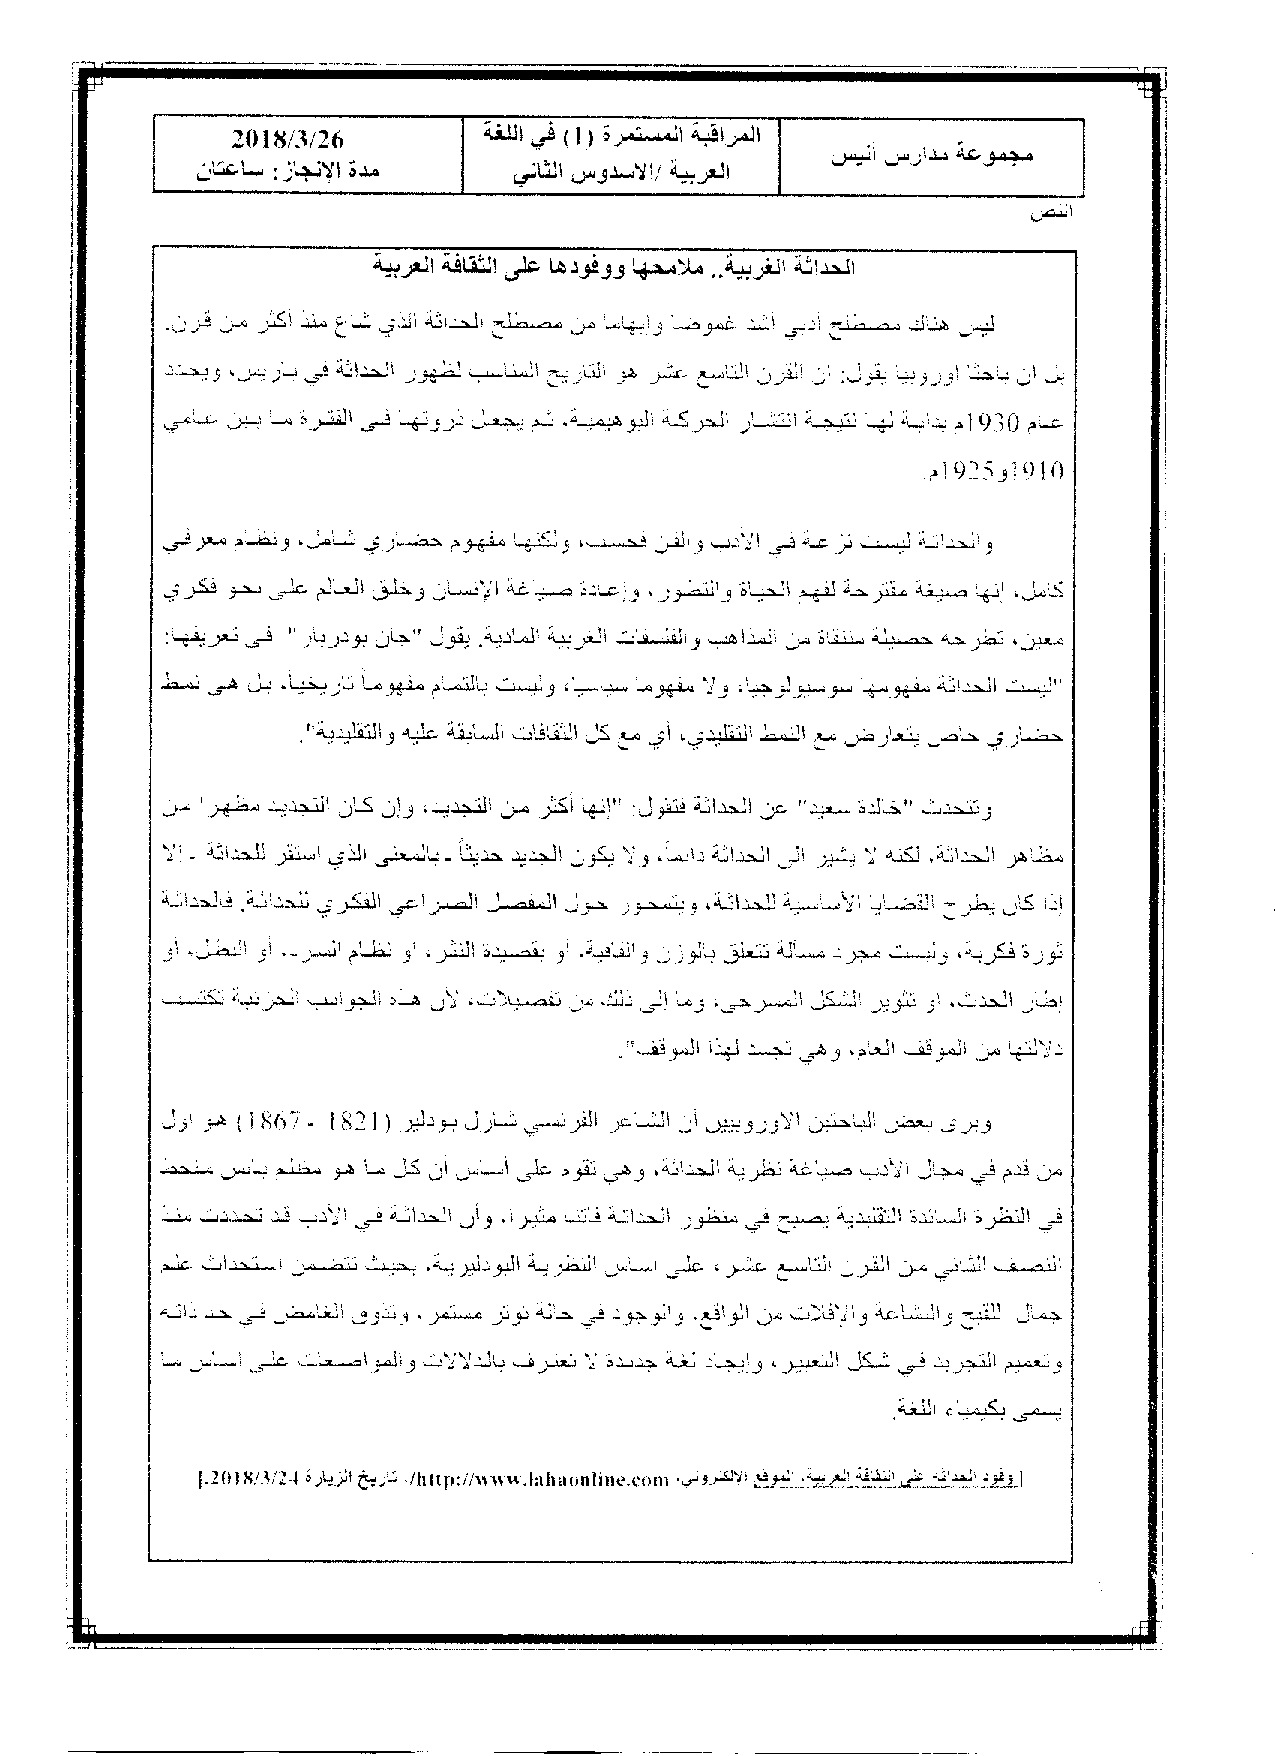 مجموعة مدارس أنيس
المراقبة المستمرة (1) في اللغة
العربية /الاسدوس الثاني
2018/3/26
مدة الانجاز: ساعتان
النص
الحداثة الغربية.. ملامحها ووفودها على الثقافة العربية
ليس هناك مصطلح أدبي أشد غموضا وإبهاما من مصطلح الحداثة الذي شاع منذ أكثر من قرن.
بل ان باحثا اوروبيا يقول: ان القرن التاسع عشر هو التاريخ المناسب لظهور الحداثة في باريس، ويحدد
عام 1930م بداية لها نتيجة انتشار الحركة البوهيمية. ثم يجعل ذروتها في الفترة ما بين عامي
1910و1925م.
والحداثة ليست نزعة في الأدب والفن فحسب، ولكنها مفهوم حضاري شامل، ونظام معرفي
كامل، إنها صيغة مقترحة لفهم الحياة والتصور، وإعادة صياغة الإنسان وخلق العالم على نحو فكري
معين، تطرحه حصيلة منتقاة من المذاهب والفلسفات الغربية المادية. يقول "جان بودريار" في تعريفها:
"ليست الحداثة مفهوما سوسيولوجيا، ولا مفهوما سياسيا، وليست بالتمام مفهوما تاريخياً، بل هي نمط
حضاري خاص يتعارض مع النمط التقليدي، أي مع كل الثقافات السابقة عليه والتقليدية".
وتتحدث "خالدة سعيد" عن الحداثة فتقول: "إنها أكثر من التجديد، وإن كان التجديد مظهرا من
مظاهر الحداثة، لكنه لا يشير الى الحداثة دائماً، ولا يكون الجديد حديثاً - بالمعنى الذي استقر للحداثة - الا
إذا كان يطرح القضايا الأساسية للحداثة، ويتمحور حول المفصل الصراعي الفكري للحداثة. فالحداثة
ثورة فكرية، وليست مجرد مسألة تتعلق بالوزن والقافية. او بقصيدة النثر، او نظام السرد. أو البطل، أو
إطار الحدث، او تثوير الشكل المسرحي، وما إلى ذلك من تفصيلات، لأن هذه الجوانب الجزئية تكتسب
دلالتها من الموقف العام، وهي تجسد لهذا الموقف".
ويرى بعض الباحثين الاوروبيين أن الشاعر الفرنسي شارل بودلير (1821 - 1867) هو اول
من قدم في مجال الأدب صياغة نظرية الحداثة، وهي تقوم على أساس أن كل ما هو مظلم بائس منحط
في النظرة السائدة التقليدية يصبح في منظور الحداثة فاتنا مثيرا، وأن الحداثة في الأدب قد تحددت منذ
النصف الثاني من القرن التاسع عشر، على اساس النظرية البودليرية. بحيث تتضمن استحداث علم
جمال للقبح والبشاعة والإفلات من الواقع. والوجود في حالة توتر مستمر، وتذوق الغامض في حد ذاته
وتعميم التجريد في شكل التعبير، وإيجاد لغة جديدة لا تعترف بالدلالات والمواصفات على اساس ما
يسمى بكيمياء اللغة.
[وفود الحداثة على الثقافة العربية، الموقع الالكتروني، http://www.lahaonline.com/، تاريخ الزيارة 2018/3/24.]